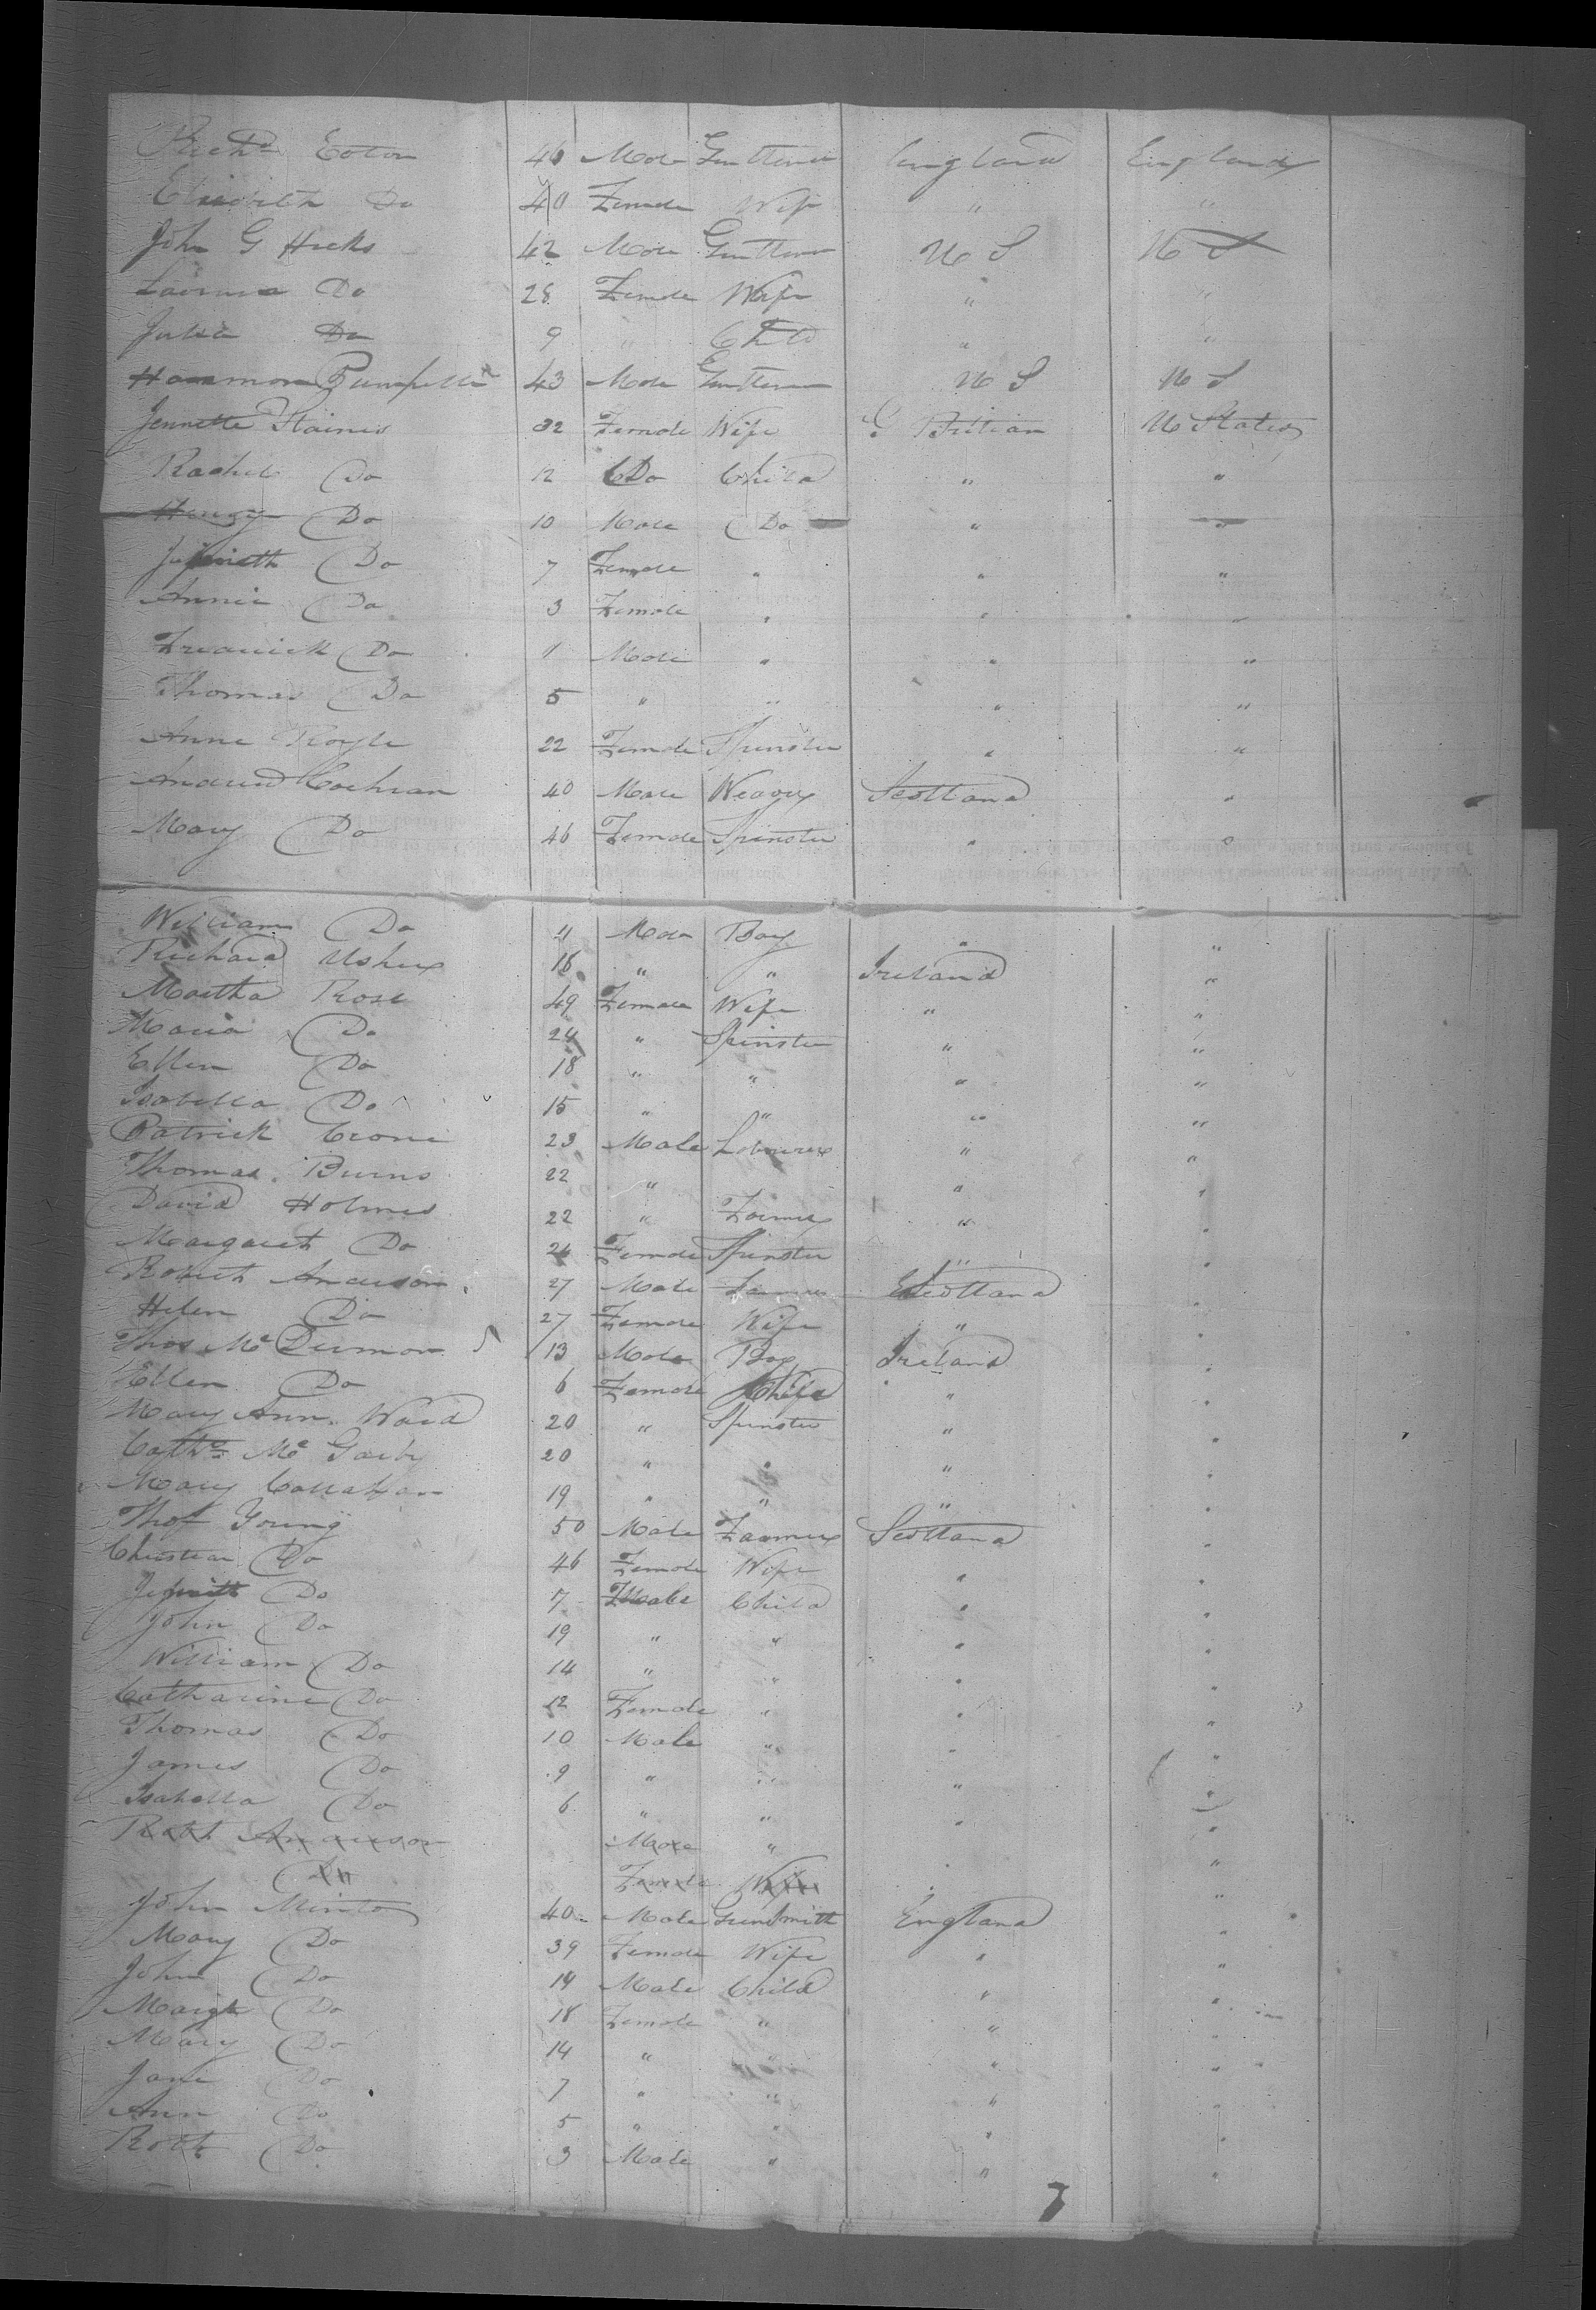 Richd Eaton 46 Male Gentleman England England
Elizabeth Do 40 Female Wife " "
John G Hicks 42 Male Gentleman U S U S
Lavinia Do 28 Female Wife " "
Julia Do 9 " Child " "
Harmon Pumpelly 43 Male Gentleman U S U S
Jennette Staines 32 Female Wife G. Britian U States
Rachel Do 12 Do Child " "
Henry Do 10 Male Do " "
Do 7 Female " " "
Annie Do 3 Female " " "
Fredrick Do 11 Male " " "
Thomas Do 5 " " " "
Anne Royle 22 Female Spinster " "
Andrew Cochran 40 Male Weaver Scotland "
Mary Do 46 Female Spinster " "
William Do 11 Male Boy " "
Richard Usher 18 " " Ireland "
Martha Rose 49 Female Wife " "
Maria Do 24 " Spinster " "
Ellen Do 18 " " " "
Isabella Do 15 " " " "
Patrick Crone 23 Male Labourer " "
Thomas Burns 22 " " " "
David Holmes 22 " Farmer " "
Margaret Do 24 Female Spinster " "
Robert Anderson 27 Male Scotland "
Helen Do 27 Female Wife " "
Thos Mc Dermon 13 Male Boy Ireland "
Ellen Do 6 Female Child " "
Mary Ann Ward 20 " Spinster " "
Cathe Mc 20 " " " "
Mary Callahan 19 " " " "
Thos Young 50 Male Farmer Scotland "
Christian Do 46 Female Wife " "
Do 7 Male Child " "
John Do 19 " " " "
William Do 14 " " " "
Catharine Do 12 Female " " "
Thomas Do 10 Male " " "
James Do 9 " " " "
Isabella Do 6 " " " "
Robt Anderson Male " " "
Do Female Wife " "
John Minto 40 Male Gun Smith England "
Mary Do 39 Female Wife " "
John Do 19 Male Child " "
Margt Do 18 Female " " "
Mary Do 14 " " " "
Jane Do 7 " " " "
Ann Do 5 " " " "
Robt Do 3 Male " " "
7